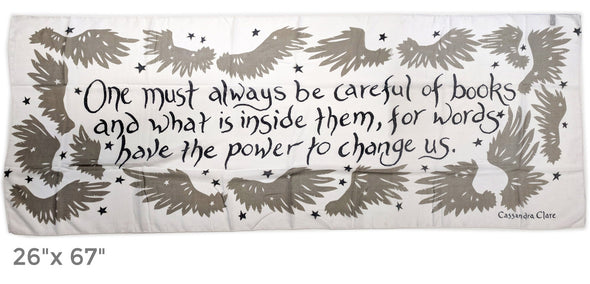 One must always be careful of books
and what is inside them, for words
have the power to change us.
Cassandra Clare
26"x 67"